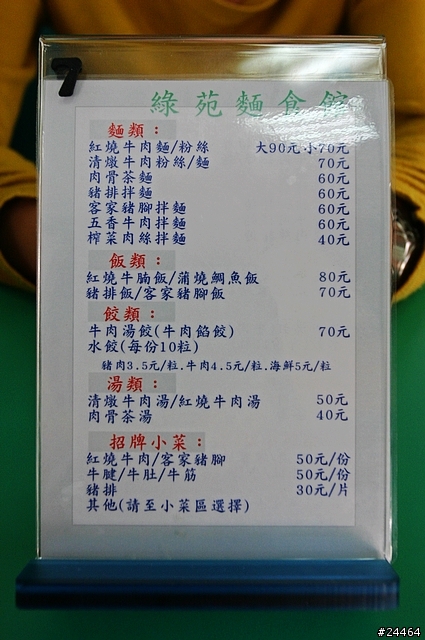 7
綠苑麵食館
麵類：
紅燒牛肉麵/粉絲 大90元小70元
清燉牛肉粉絲/麵 70元
肉骨茶麵 60元
豬排拌麵 60元
客家豬腳拌麵 60元
五香牛肉拌麵 60元
榨菜肉絲拌麵 40元
飯類：
紅燒牛腩飯/蒲燒鯛魚飯 80元
豬排飯/客家豬腳飯 70元
餃類：
牛肉湯餃(牛肉餡餃) 70元
水餃(每份10粒)
豬肉3.5元/粒.牛肉4.5元/粒.海鮮5元/粒
湯類：
清燉牛肉湯/紅燒牛肉湯 50元
肉骨茶湯 40元
招牌小菜：
紅燒牛肉/客家豬腳 50元/份
牛腱/牛肚/牛筋 50元/份
豬排 30元/片
其他(請至小菜區選擇)
#24464